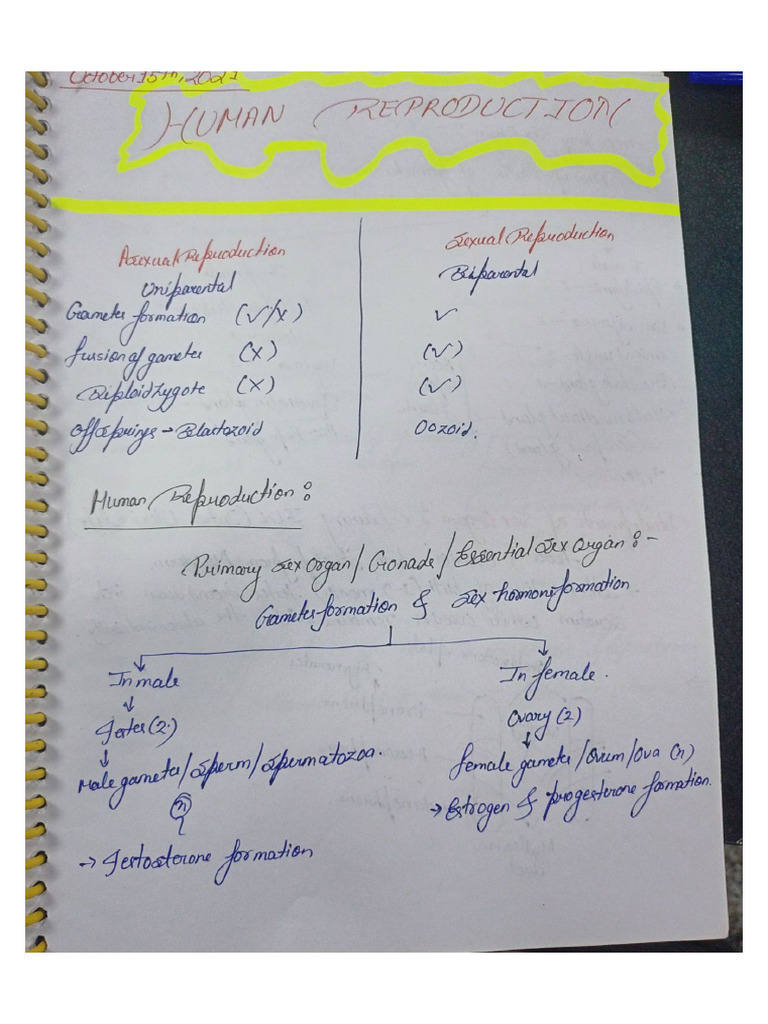 October 15th, 2021
HUMAN REPRODUCTION
Asexual Reproduction
Sexual Reproduction
Uniparental
Biparental
Gametes formation (✓/x) ✓
fussion of gametes (x) (✓)
Diploid zygote (x) (✓)
Offsprings → Blastozoid Oozoid.
Human Reproduction :
Primary sex organ / Gonads / Essential Sex Organ :-
Gametes formation & Sex hormone formation
In male
In female.
Testes (2)
Ovary (2)
Male gametes / Sperm / Spermatozoa.
female gametes / Ovum / Ova (n)
n
→ Estrogen & progesterone formation.
→ Testosterone formation